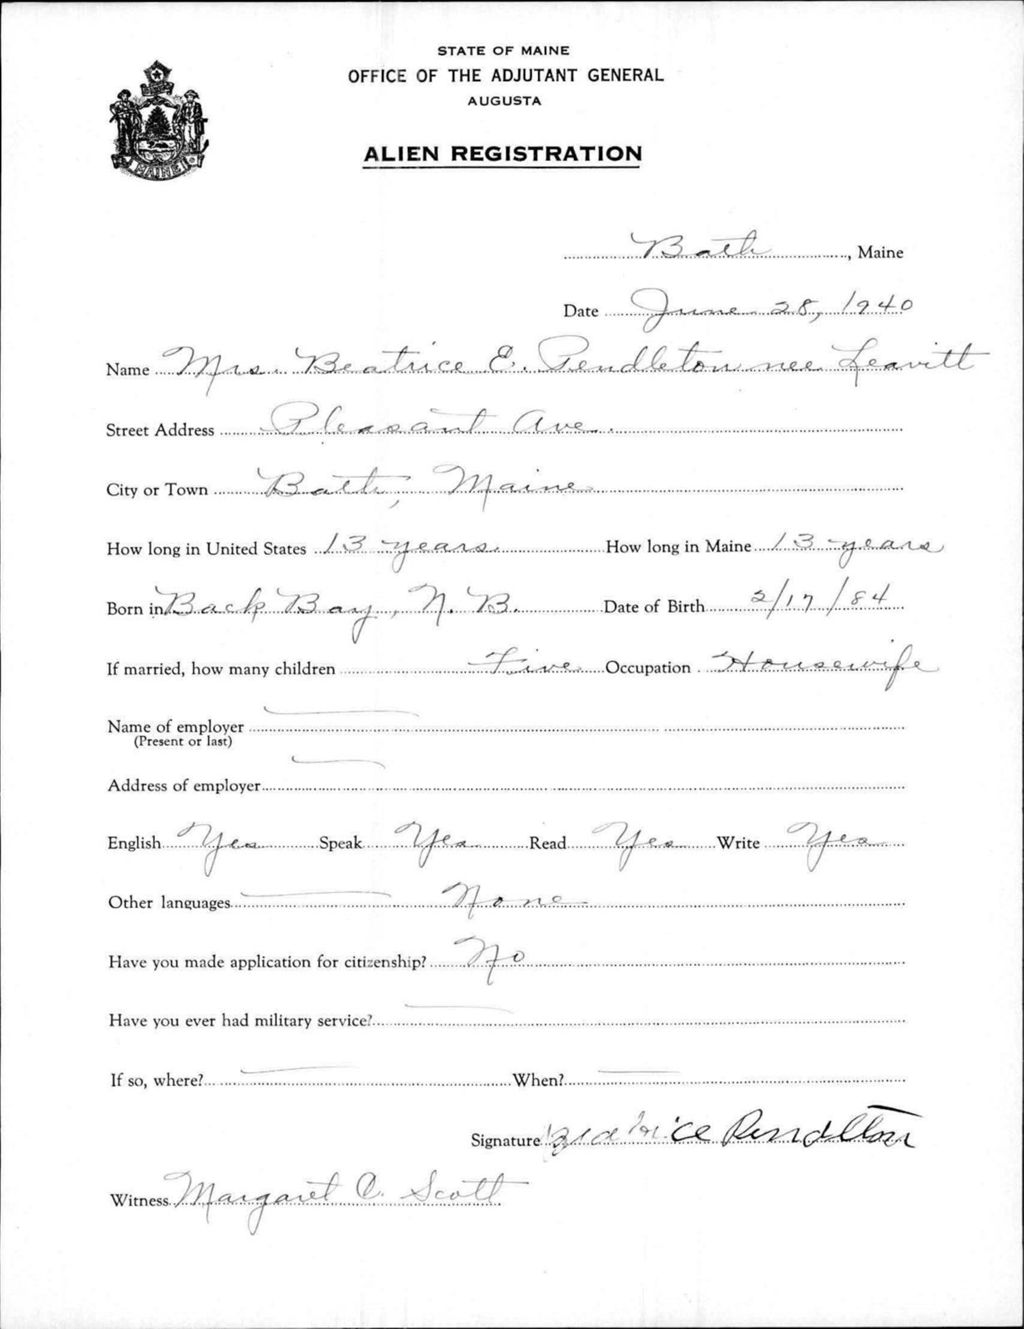 STATE OF MAINE
OFFICE OF THE ADJUTANT GENERAL
AUGUSTA
ALIEN REGISTRATION
MAINE
Bath, Maine
Date June 28, 1940
Name Mrs. Beatrice E. Pendleton nee Leavitt
Street Address Pleasant Ave.
City or Town Bath, Maine
How long in United States 13 years How long in Maine 13 years
Born in Back Bay, N. B. Date of Birth 2/17/84
If married, how many children Five Occupation Housewife
Name of employer
(Present or last)
Address of employer
English Yes Speak Yes Read Yes Write Yes
Other languages None
Have you made application for citizenship? No
Have you ever had military service?
If so, where? When?
Signature Beatrice Pendleton
Witness Margaret C. Scott